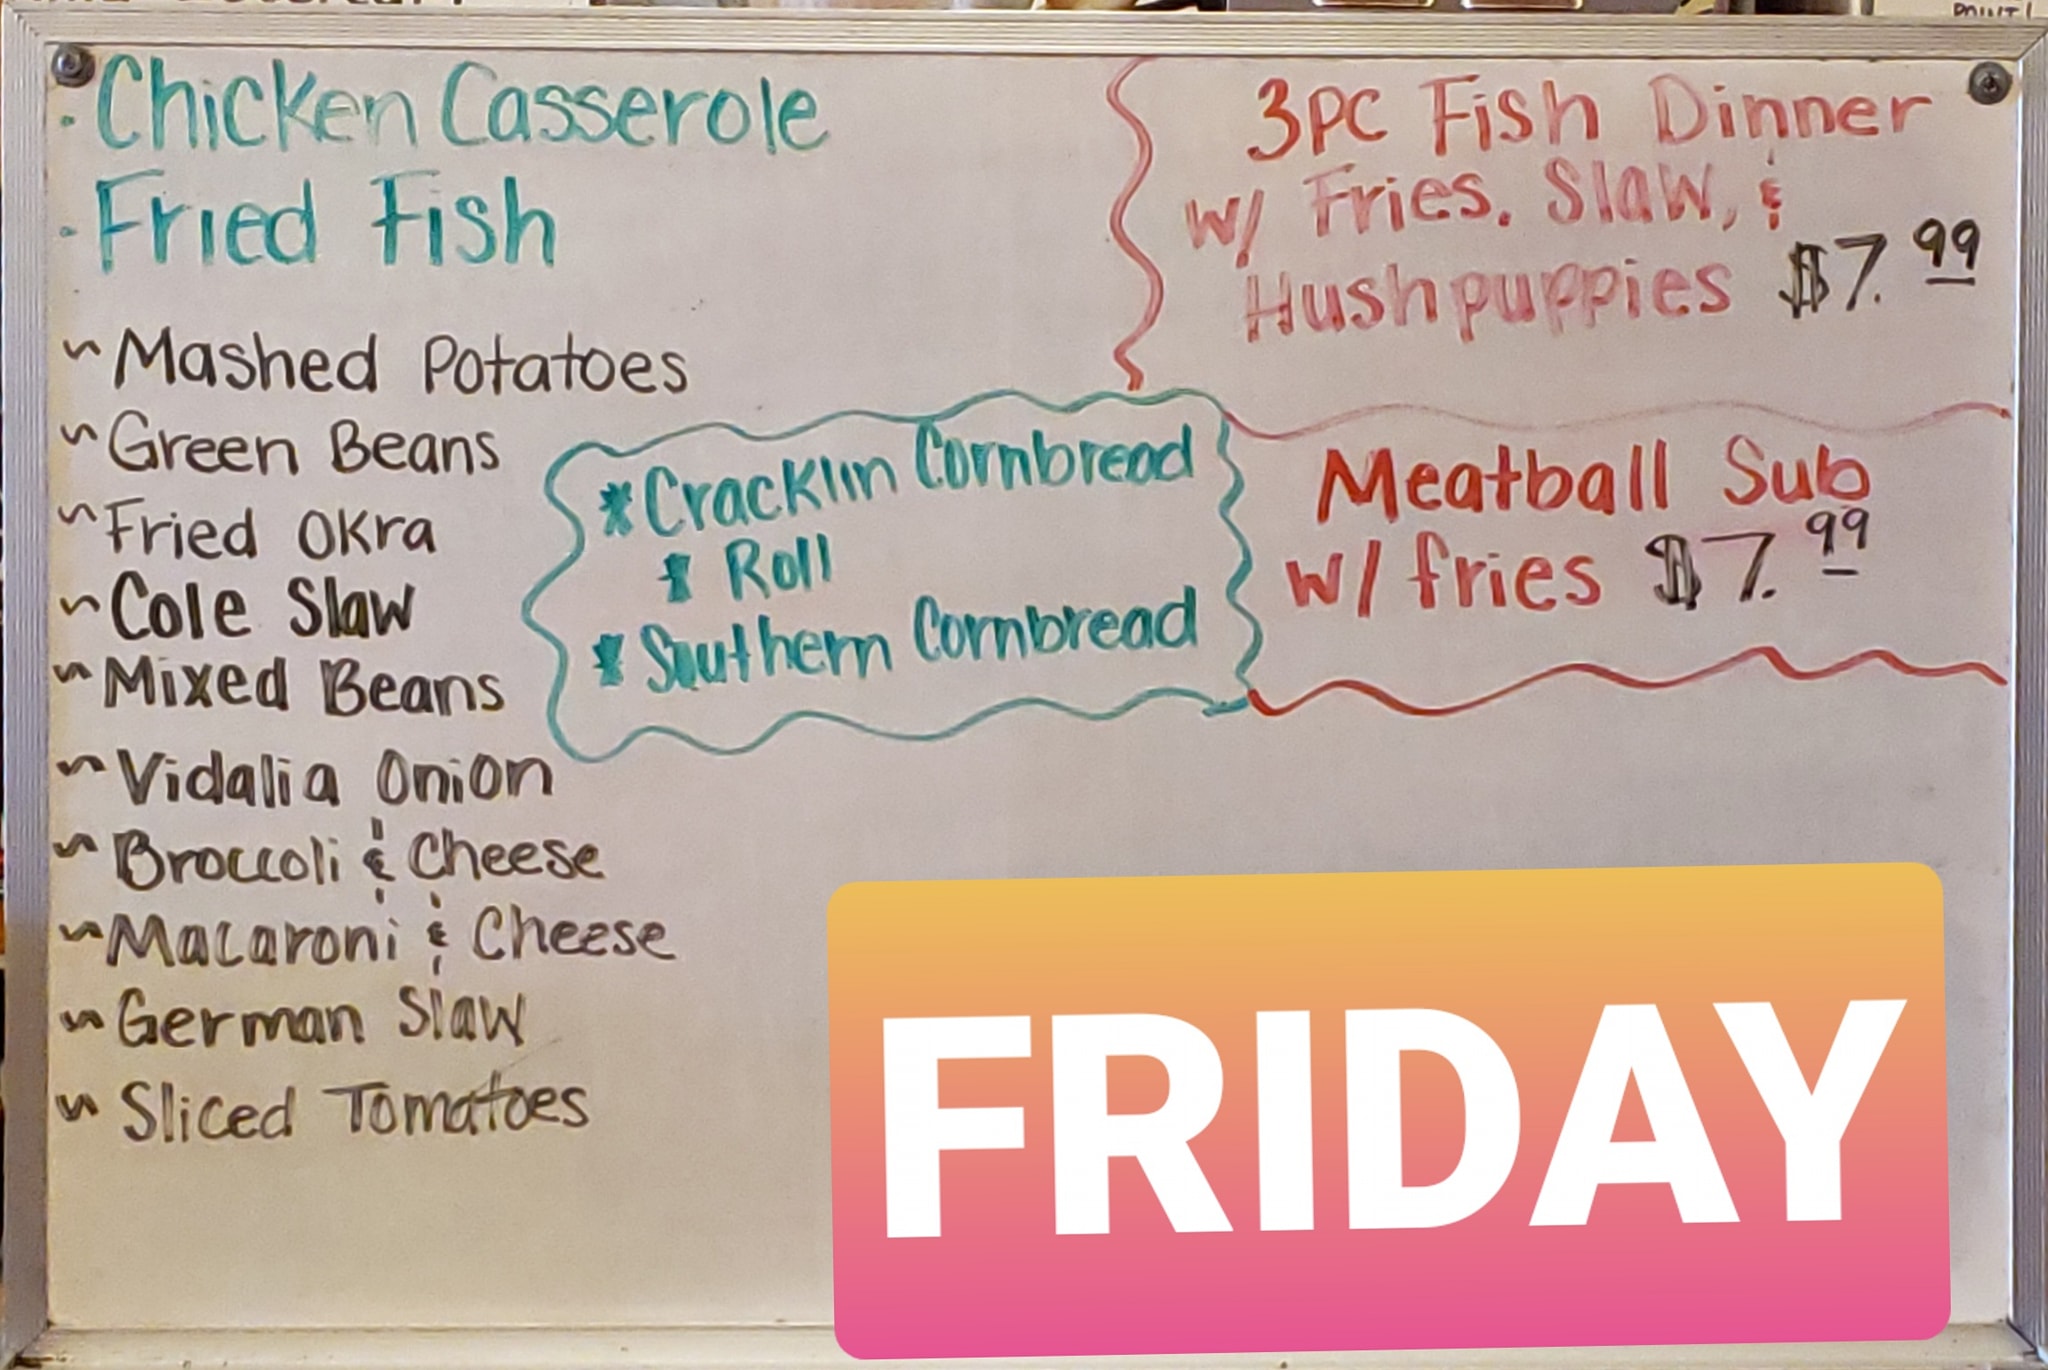 · Chicken Casserole
· Fried Fish
~ Mashed Potatoes
~ Green Beans
~ Fried Okra
~ Cole Slaw
~ Mixed Beans
~ Vidalia Onion
~ Broccoli & Cheese
~ Macaroni & Cheese
~ German Slaw
~ Sliced Tomatoes
* Cracklin Cornbread
* Roll
* Southern Cornbread
3PC Fish Dinner
w/ Fries, Slaw, &
Hushpuppies $7.99
Meatball Sub
w/ fries $7.99
FRIDAY